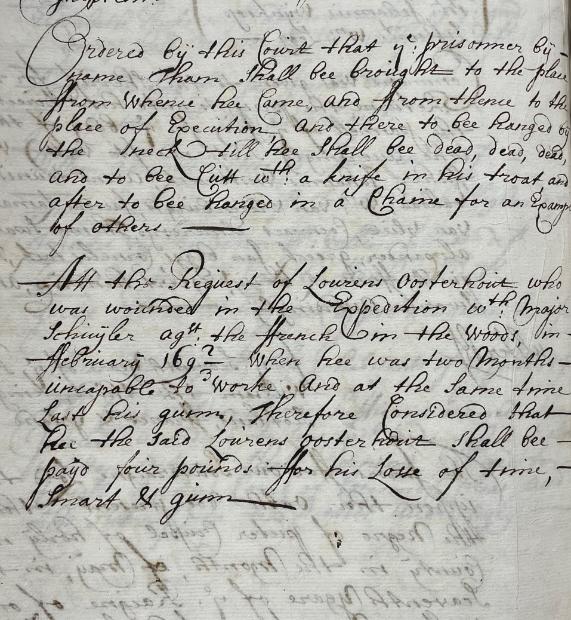 Ordered by this Court that ye: prisonner by -
name Tham Shall bee brought to the place
ffrom whence hee Came, and ffrom thence to the
place of Execution, and there to bee hanged by
the neck till hee Shall bee dead, dead, dead,
and to bee Cutt wth: a knife in his troat, and
after to bee hanged in a Chaine for an Examp
of others
Att the Request of Lourens Oosterhout who
was wounded in the Expedition wth: Major
Schuyler agst: the ffrench in the woods, in -
ffebruary 169 2/3 - when hee was two Months -
uncapable to worke. And at the Same time
Last his gunn, Therefore Considered that
hee the Said Lourens oosterhout Shall bee -
payd four pounds ffor his Losse of time, -
Smart & gunn